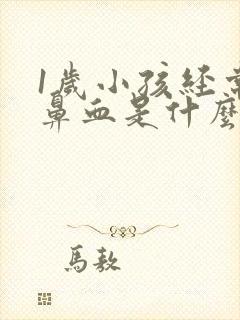 1歲小孩經常
鼻血是什麼
馬敖